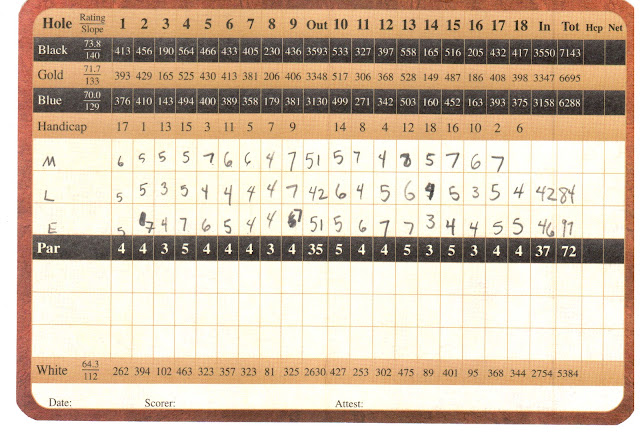 Hole Rating Slope 1 2 3 4 5 6 7 8 9 Out 10 11 12 13 14 15 16 17 18 In Tot Hcp Net
Black 73.8 140 413 456 190 564 466 433 405 230 436 3593 533 327 397 558 165 516 205 432 417 3550 7143
Gold 71.7 133 393 429 165 525 430 413 381 206 406 3348 517 306 368 528 149 487 186 408 398 3347 6695
Blue 70.0 129 376 410 143 494 400 389 358 179 381 3130 499 271 342 503 160 452 163 393 375 3158 6288
Handicap 17 1 13 15 3 11 5 7 9 14 8 4 12 18 16 10 2 6
M 6 5 5 5 7 6 6 4 7 51 5 7 4 8 5 7 6 7
L 5 5 3 5 4 4 4 4 7 42 6 4 5 6 4 5 3 5 4 42 84
E 5 7 4 7 6 5 4 4 7 51 5 6 7 7 3 4 4 5 5 46 97
Par 4 4 3 5 4 4 4 3 4 35 5 4 4 5 3 5 3 4 4 37 72
White 64.3 112 262 394 102 463 323 357 323 81 325 2630 427 253 302 475 89 401 95 368 344 2754 5384
Date: Scorer: Attest: